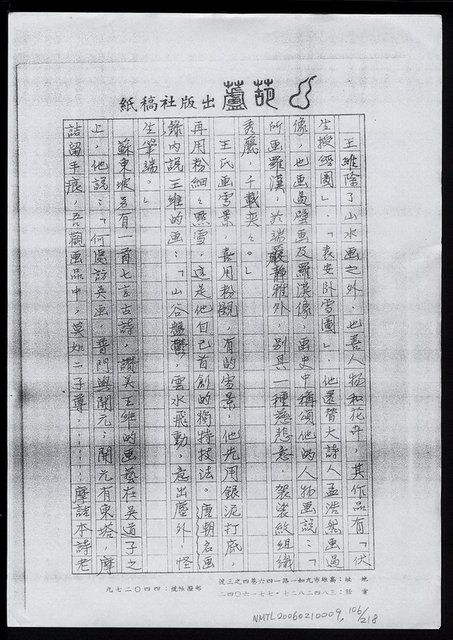 葫蘆出版社稿紙
王維除了山水画之外,也善人物和花卉,其作品有「伏
生授經圖」.「袁安卧雪圖」.他還替大詩人孟浩然画過
像,也画過壁画及羅漢像,画史中稱頌他的人物画說:「
所画羅漢,於端嚴靜雅外,別具一種慈悲意.袈裟紋組織
秀麗,千載奕々。」
王氏画雪景,喜用粉,有的雪景,他先用銀泥打底,
再用粉細々點雪,這是他自己首創的獨特技法。唐朝名画
錄內說王維的画:「山谷盤鬱,雲水飛動,意出塵外,怪
生筆端。」
蘇東坡曾有一首七言古詩,讚美王維的画藝在吳道子之
上,他說:「何處訪吳画,普門與開元;開元有東塔,摩
詰留手痕,吾觀画品中,莫如二子尊.……摩詰本詩老
地址:高雄市九如一路一四六巷四之三號
電話:三八四二八二七・七七一〇六四二
郵撥帳號:四四〇二七九
NMTL20060210009, 106/218